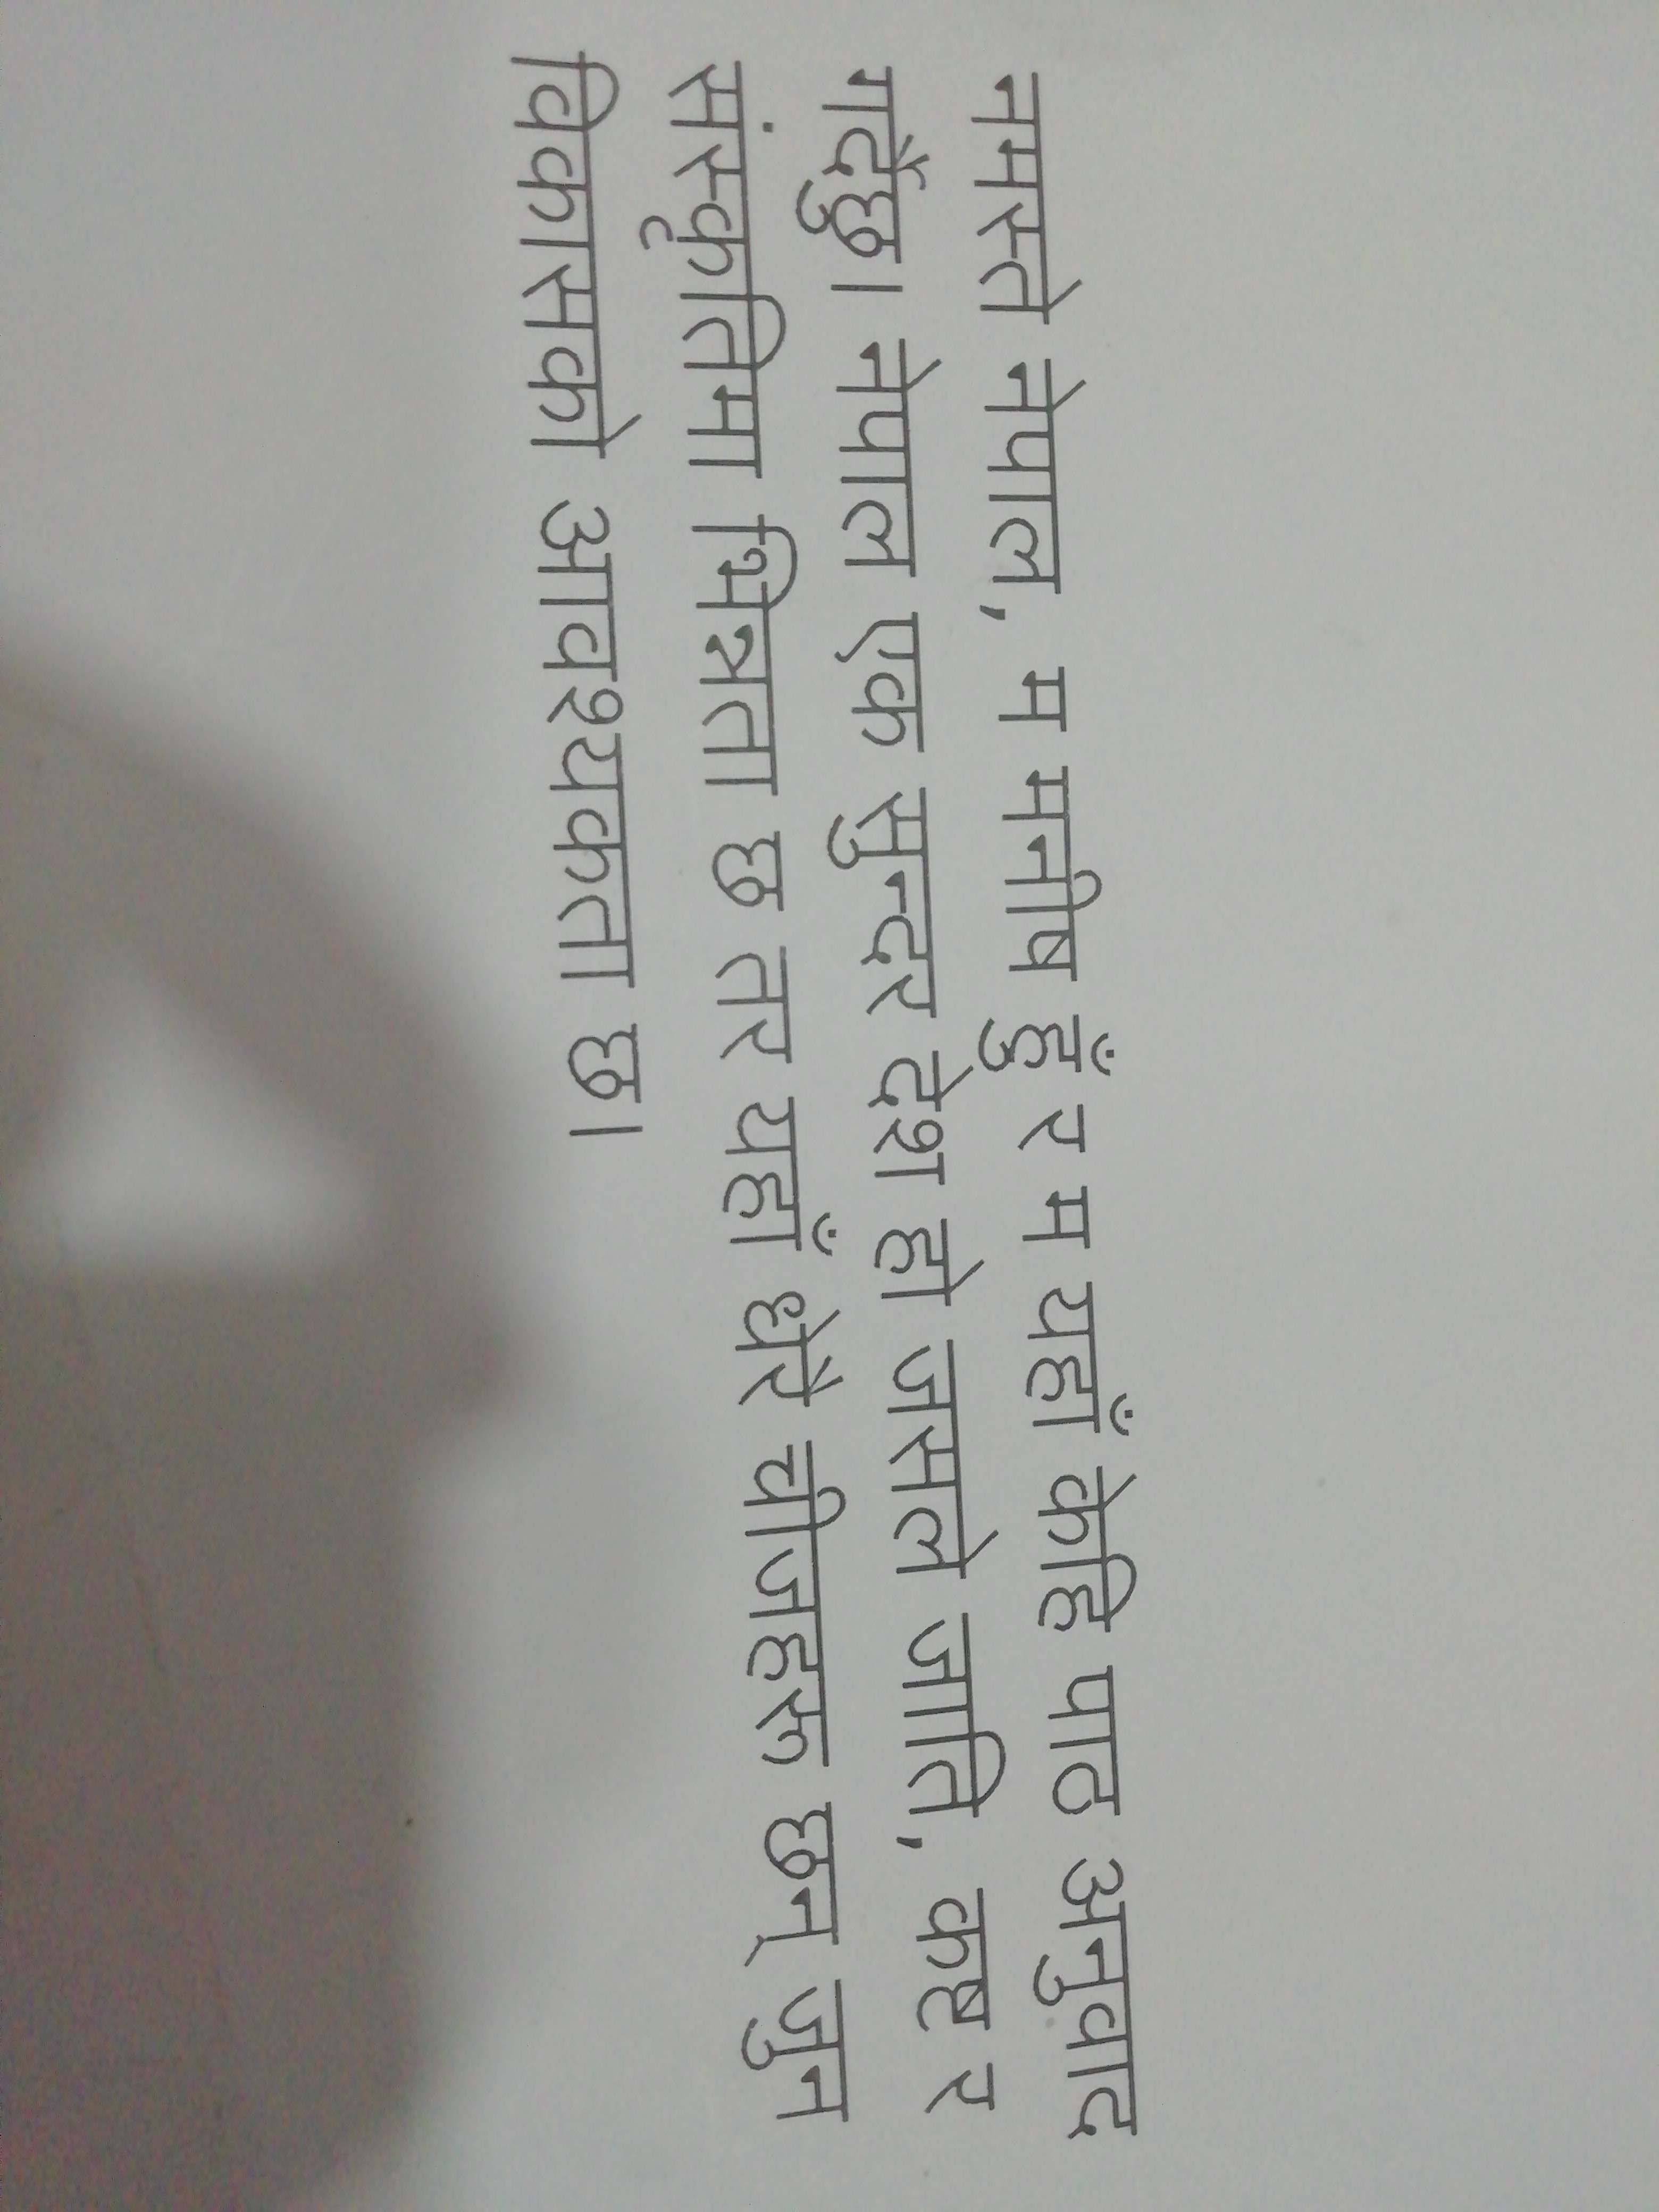 नमस्ते नेपाल, म मनीष हुँ र म यहाँ केहि पाठ अनुवाद
गर्दैछु। नेपाल एक सुन्दर देश हो जसले जाति, कष्ट र
संस्कृतिमा भिन्नता छ तर यहाँ धेरै चीजहरू छन् जुन
विकासको आवश्यकता छ।